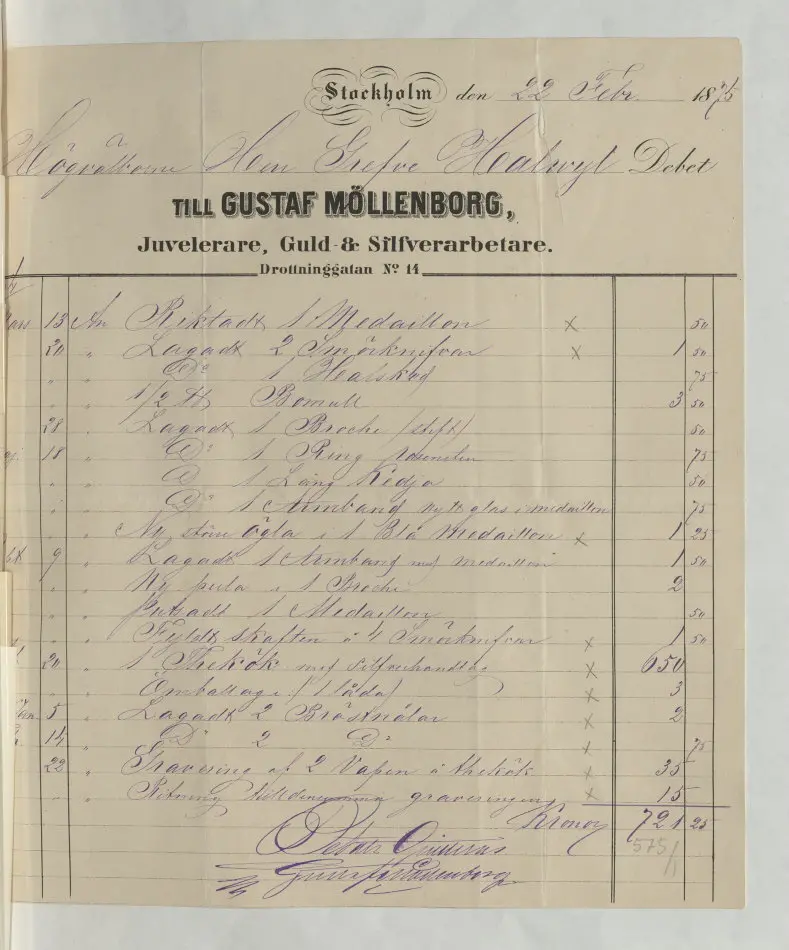 Stockholm den 22 Febr. 1875
Högvälborne Herr Grefve Hallwyl Debet
TILL GUSTAF MÖLLENBORG,
Juvelerare, Guld- & Silfverarbetare.
Drottninggatan No 14
13 An Riktadt 1 Medaillon x 50
20 " Lagadt 2 Smörknifvar x 1 50
" " Do 1 Halsked 75
" " 1/2 ℔ Bomull 3 50
28 " Lagadt 1 Broche (stift) 50
18 " Do 1 Ring 75
" " D 1 Lång Kedja 50
" " Do 1 Armband nytt glas i medaillon 75
" " Ny större Ögla i 1 Blå Medaillon x 1 25
9 " Lagadt 1 Armband med medaillon 1 50
" " Ny perla i 1 Broche 2
" " Putsadt 1 Medaillon 50
" " Fyldt skaften å 4 Smörknifvar x 1 50
20 " 1 Thekök med silfverhandtag x 650
" " Emballage (1 låda) x 3
5 " Lagadt 2 Bröstnålar x 2
14 " Do 2 Do x 75
22 " Gravering af 2 Vapen å thekök x 35
" " Ritning till graveringen x 15
Kronor 721 25
Betalt Qvitteras 575/1
Gustaf Möllenborg